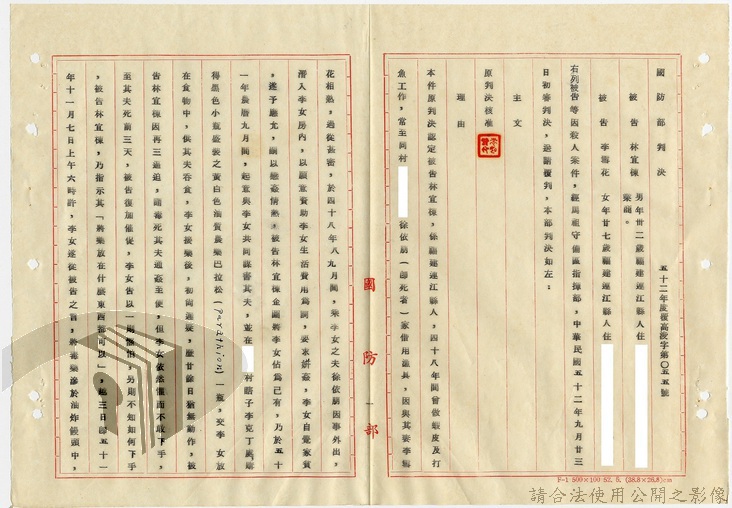 國防部判決
五十二年度覆高汶字第〇五五號
被告 林宜棟 男年卅二歲福建連江縣人住
業商。
被告 李霉花 女年廿七歲福建連江縣人住
右列被告等因殺人案件,經馬祖守備區指揮部,中華民國五十二年九月廿三
日初審判決,送請覆判,本部判決如左:
主文
原判決核准
理由
本件原判決認定被告林宜棟,係福建連江縣人,四十八年間曾做蝦皮及打
魚工作,常至同村 徐依崩(即死者)家借用漁具,因與其妻李霉
國防部
一
花相熟,過從甚密,於四十八年八月間,乘李女之夫徐依崩因事外出,
潛入李女房內,以願意資助李女生活費用為詞,要求姘姦,李女自覺家貧
,遂予應允,嗣以戀姦情熱,被告林宜棟企圖將李女佔為己有,乃於五十
一年農曆九月間,起意與李女共同謀害其夫,並在 村瞎子李克丁處
得墨色小瓶盛裝之黃白色油質農藥巴拉松(Parathion)一瓶,交李女放
在食物中,供其夫吞食,李女接藥後,初尚遲疑,歷廿餘日猶無動作,被
告林宜棟因再三催迫,謂毒死其夫通姦至便,但李女依然懼而不敢下手,
至其夫死前三天,被告復加催促,李女告以一則懼怕,另則不知如何下手
,被告林宜棟,乃指示其「將藥放在什麼東西都可以」,越三日即五十一
年十一月七日上午六時許,李女遂從被告之旨,將毒藥滲於油炸饅頭中,
F-1 500×100 52. 5. (38.8×26.8)cm
請合法使用公開之影像